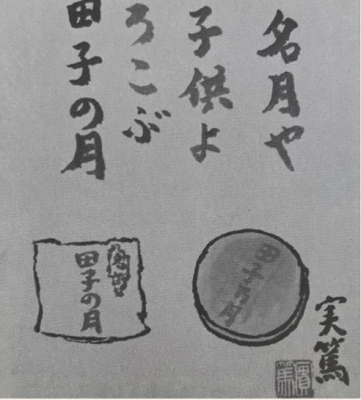 名月や
子供よ
ろこぶ
田子の月
田子の月
田子の月
実篤